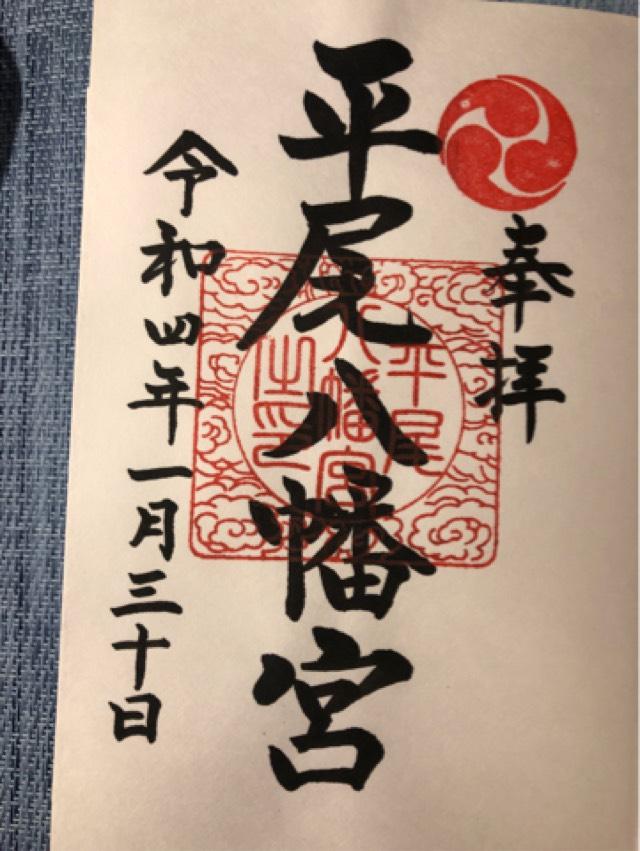 奉拝
平尾八幡宮
平尾
八幡宮
之印
令和四年一月三十日